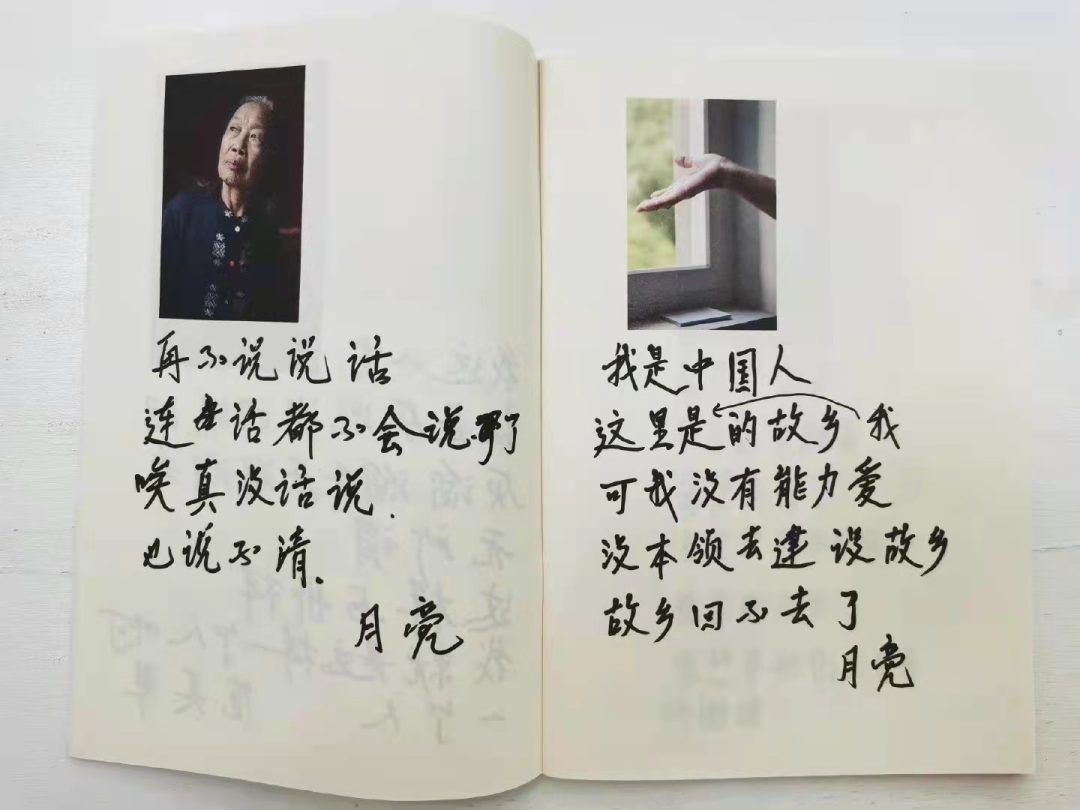 再不说说话
连话都不会说了
唉真没话说.
也说不清.
月亮
我是中国人
这里是的故乡我
可我没有能力爱
没本领去建设故乡
故乡回不去了
月亮